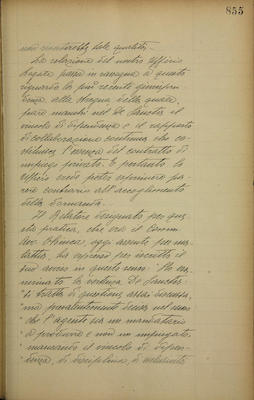 855
non rivestirebbe tale qualità.
La relazione del nostro Ufficio
Legale passa in rassegna a questo
riguardo la più recente giurispru
denza alla stregua della quale,
pare manchi nel De Sanctis il
vincolo di dipendenza e il rapporto
di collaborazione continua che co-
stituisce l'essenza del contratto di
impiego privato. E pertanto lo
Ufficio crede poter esprimere pa-
rere contrario all'accoglimento
della domanda.
Il Relatore designato per que
sta pratica, che era il Comm.
oggi assente per ma
lattia, ha espresso per iscritto il
suo avviso in questo senso: "Ho esa
minato la vertenza De Sanctis.
Si tratta di questione assai discussa,
ma prevalentemente decisa nel senso
che l'agente sia un mandatario
o produttore e non un impiegato,
mancando il vincolo di dipen-
denza, di disciplina, di